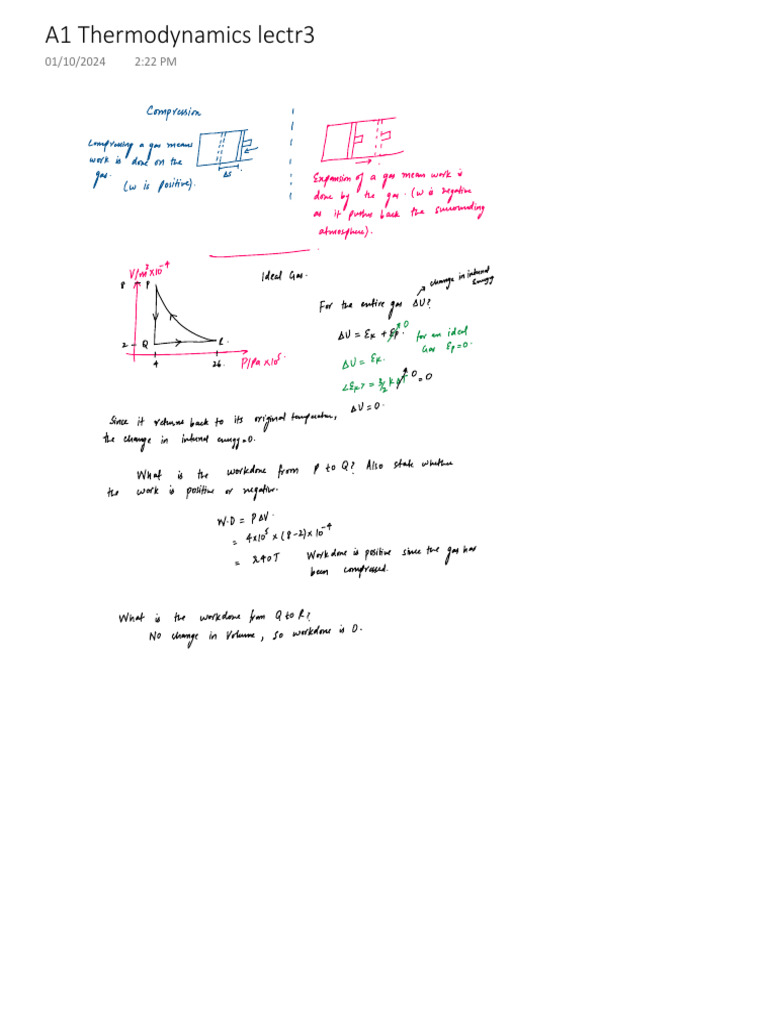 A1 Thermodynamics lectr3
01/10/2024 2:22 PM
Compression
Compressing a gas means
work is done on the
gas.
(W is positive).
Δs
Expansion of a gas mean work is
done by the gas. (W is negative
as it pushes back the surrounding
atmosphere).
V/m³ x10⁻⁴
8 P
2 Q
4 26
P/Pa x10⁵
Ideal Gas.
change in internal
Energy
For the entire gas ΔU?
ΔU = Ek + Ep 0
for an ideal
Gas Ep=0.
ΔU = Ek.
<Ek> = 3/2 k ΔT 0 = 0
ΔU = 0.
Since it returns back to its original temperature,
the change in internal energy = 0.
What is the workdone from P to Q? Also state whether
the work is positive or negative.
W.D = P ΔV.
= 4x10⁵ x (8-2) x 10⁻⁴
= 240J Workdone is positive since the gas has
been compressed.
What is the workdone from Q to R?
No change in Volume, so workdone is 0.